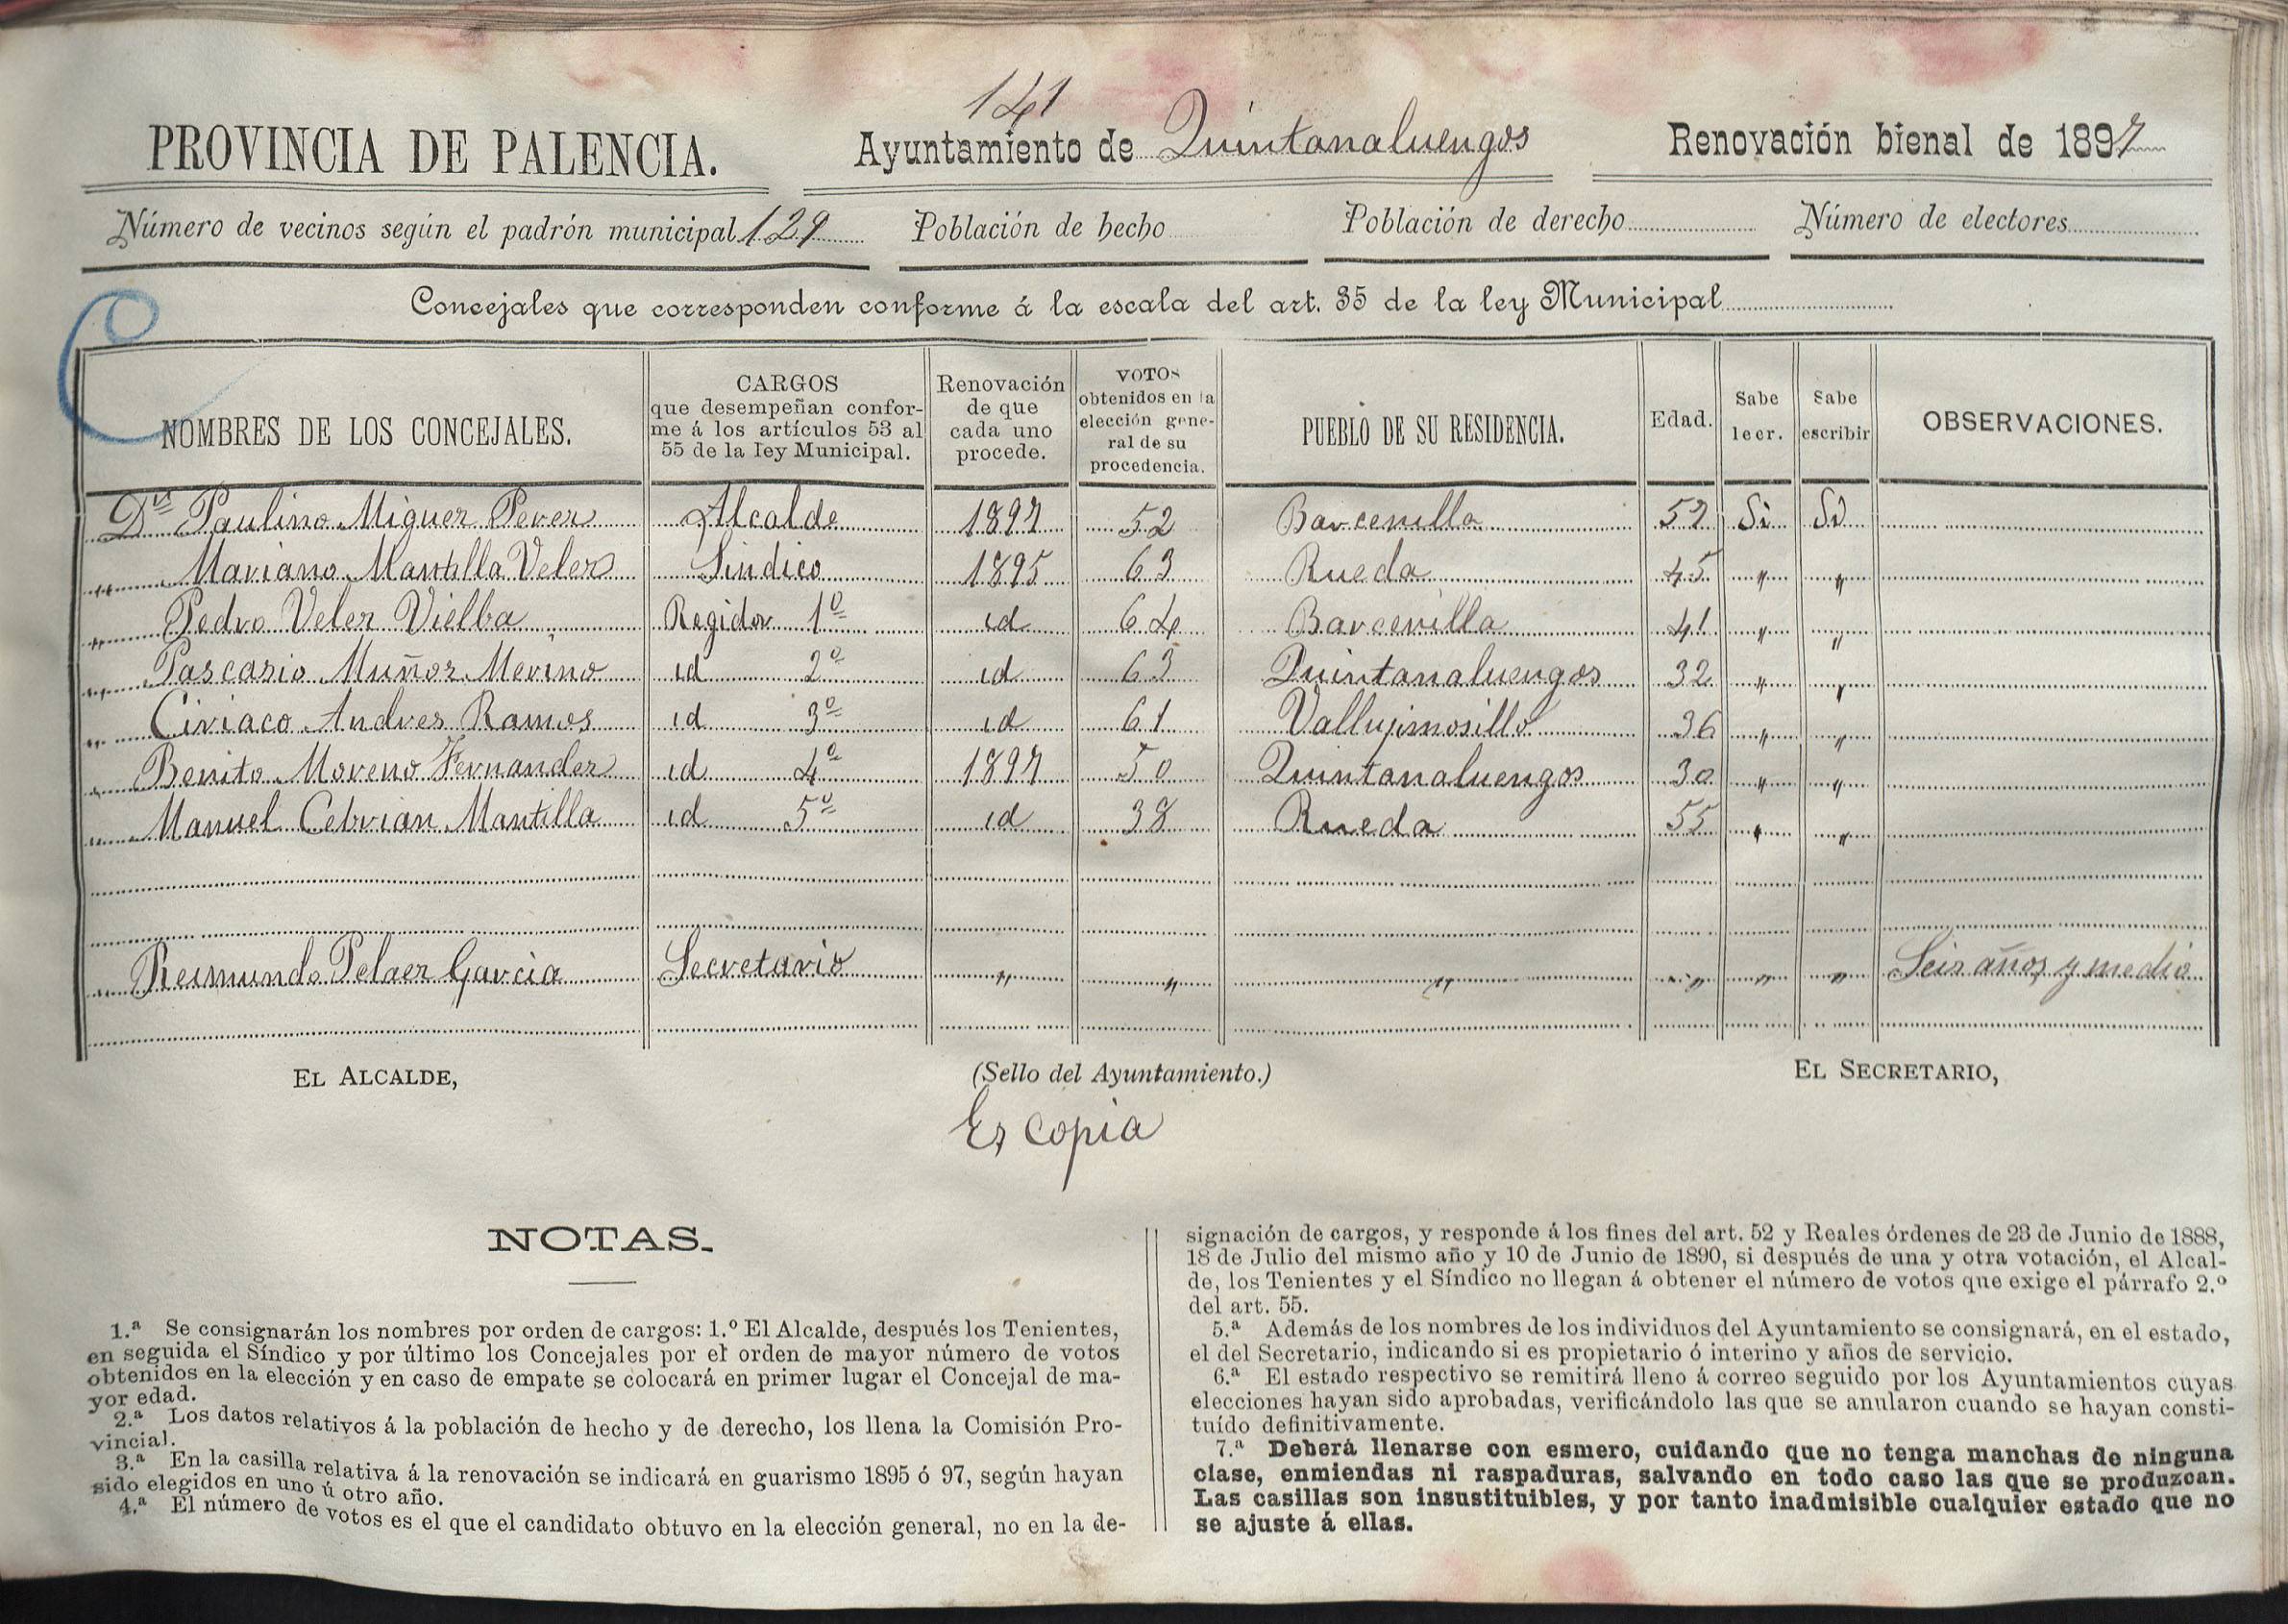 141
PROVINCIA DE PALENCIA. Ayuntamiento de Quintanaluengos Renovación bienal de 1897
Número de vecinos según el padrón municipal 129 Población de hecho Población de derecho Número de electores
Concejales que corresponden conforme á la escala del art. 35 de la ley Municipal
NOMBRES DE LOS CONCEJALES. CARGOS que desempeñan conforme á los artículos 53 al 55 de la ley Municipal. Renovación de que cada uno procede. VOTOS obtenidos en la elección general de su procedencia. PUEBLO DE SU RESIDENCIA. Edad. Sabe leer. Sabe escribir OBSERVACIONES.
Dn Paulino Miguez Perez Alcalde 1897 52 Barcenilla 52 Si Si
" Mariano Mantilla Velez Sindico 1895 63 Rueda 45 " "
" Pedro Velez Vielba Regidor 1º id 64 Barcenilla 41 " "
" Pascasio Muñoz Merino id 2º id 63 Quintanaluengos 32 " "
" Ciriaco Andres Ramos id 3º id 61 36 " "
" Benito Moreno Fernandez id 4º 1897 50 Quintanaluengos 30 " "
" Manuel Cebrian Mantilla id 5º id 38 Rueda 55 " "
" Reimundo Pelaez Garcia Secretario " " " " " " Seis años y medio
EL ALCALDE, (Sello del Ayuntamiento.) EL SECRETARIO,
Es copia
NOTAS.
1.ª Se consignarán los nombres por orden de cargos: 1.º El Alcalde, después los Tenientes,
en seguida el Síndico y por último los Concejales por el orden de mayor número de votos
obtenidos en la elección y en caso de empate se colocará en primer lugar el Concejal de ma-
yor edad.
2.ª Los datos relativos á la población de hecho y de derecho, los llena la Comisión Pro-
vincial.
3.ª En la casilla relativa á la renovación se indicará en guarismo 1895 ó 97, según hayan
sido elegidos en uno ú otro año.
4.ª El número de votos es el que el candidato obtuvo en la elección general, no en la de-
signación de cargos, y responde á los fines del art. 52 y Reales órdenes de 23 de Junio de 1888,
18 de Julio del mismo año y 10 de Junio de 1890, si después de una y otra votación, el Alcal-
de, los Tenientes y el Síndico no llegan á obtener el número de votos que exige el párrafo 2.º
del art. 55.
5.ª Además de los nombres de los individuos del Ayuntamiento se consignará, en el estado,
el del Secretario, indicando si es propietario ó interino y años de servicio.
6.ª El estado respectivo se remitirá lleno á correo seguido por los Ayuntamientos cuyas
elecciones hayan sido aprobadas, verificándolo las que se anularon cuando se hayan consti-
tuído definitivamente.
7.ª Deberá llenarse con esmero, cuidando que no tenga manchas de ninguna
clase, enmiendas ni raspaduras, salvando en todo caso las que se produzcan.
Las casillas son insustituibles, y por tanto inadmisible cualquier estado que no
se ajuste á ellas.